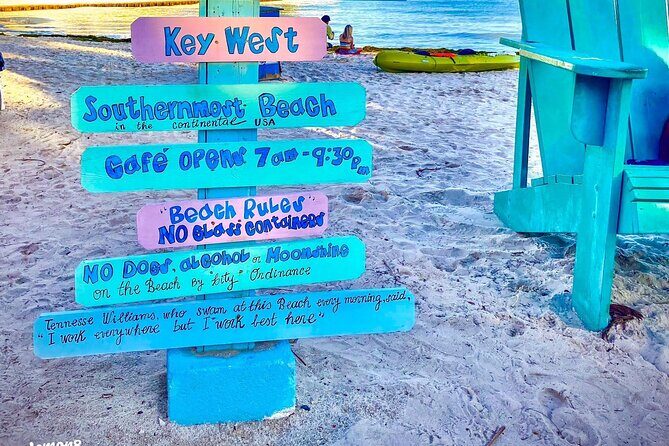 Key West
Southernmost Beach
in the continental USA
Café opens 7am - 9:30pm
"Beach Rules"
NO Glass Containers
NO Dogs, alcohol or Moonshine
on the Beach By "City" Ordinance
Tennesse Williams, who swam at this Beach every morning, said,
"I work everywhere but I work best here"